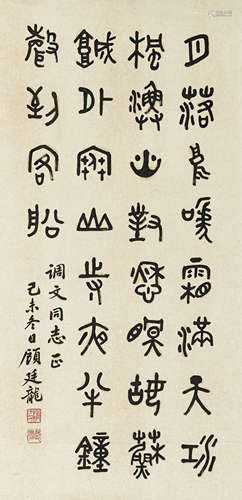 月落烏啼霜滿天江
楓漁火對愁眠姑蘇
城外寒山寺夜半鐘
聲到客船
调文同志正
己未冬日顧廷龍